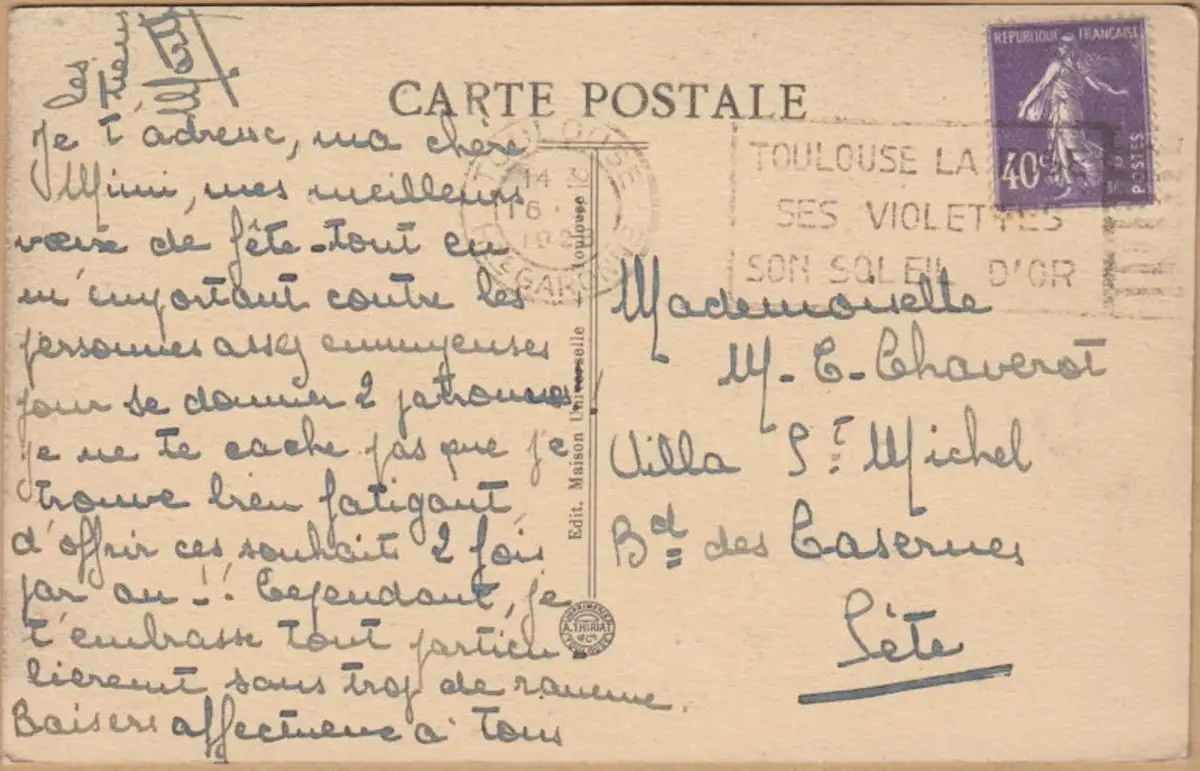 les
tiens
CARTE POSTALE
Je t'adresse, ma chère
Mimi, mes meilleurs
vœux de fête - tout en
m'emportant contre les
personnes assez ennuyeuses
pour se donner 2 patronnes.
je ne te cache pas que je
trouve bien fatigant
d'offrir ces souhaits 2 fois
par an !! Cependant, je
t'embrasse tout particu-
lièrement sans trop de rancune.
Baisers affectueux à tous
Edit. Maison Universelle - Toulouse
IMPRIMERIE
A. THIRIAT
TOULOUSE
REPUBLIQUE FRANÇAISE
40c
POSTES
TOULOUSE
14
16
HTE GARONNE
TOULOUSE LA
SES VIOLETTES
SON SOLEIL D'OR
Mademoiselle
M-E-Chaverot
Villa St Michel
Bd des Casernes
Sète